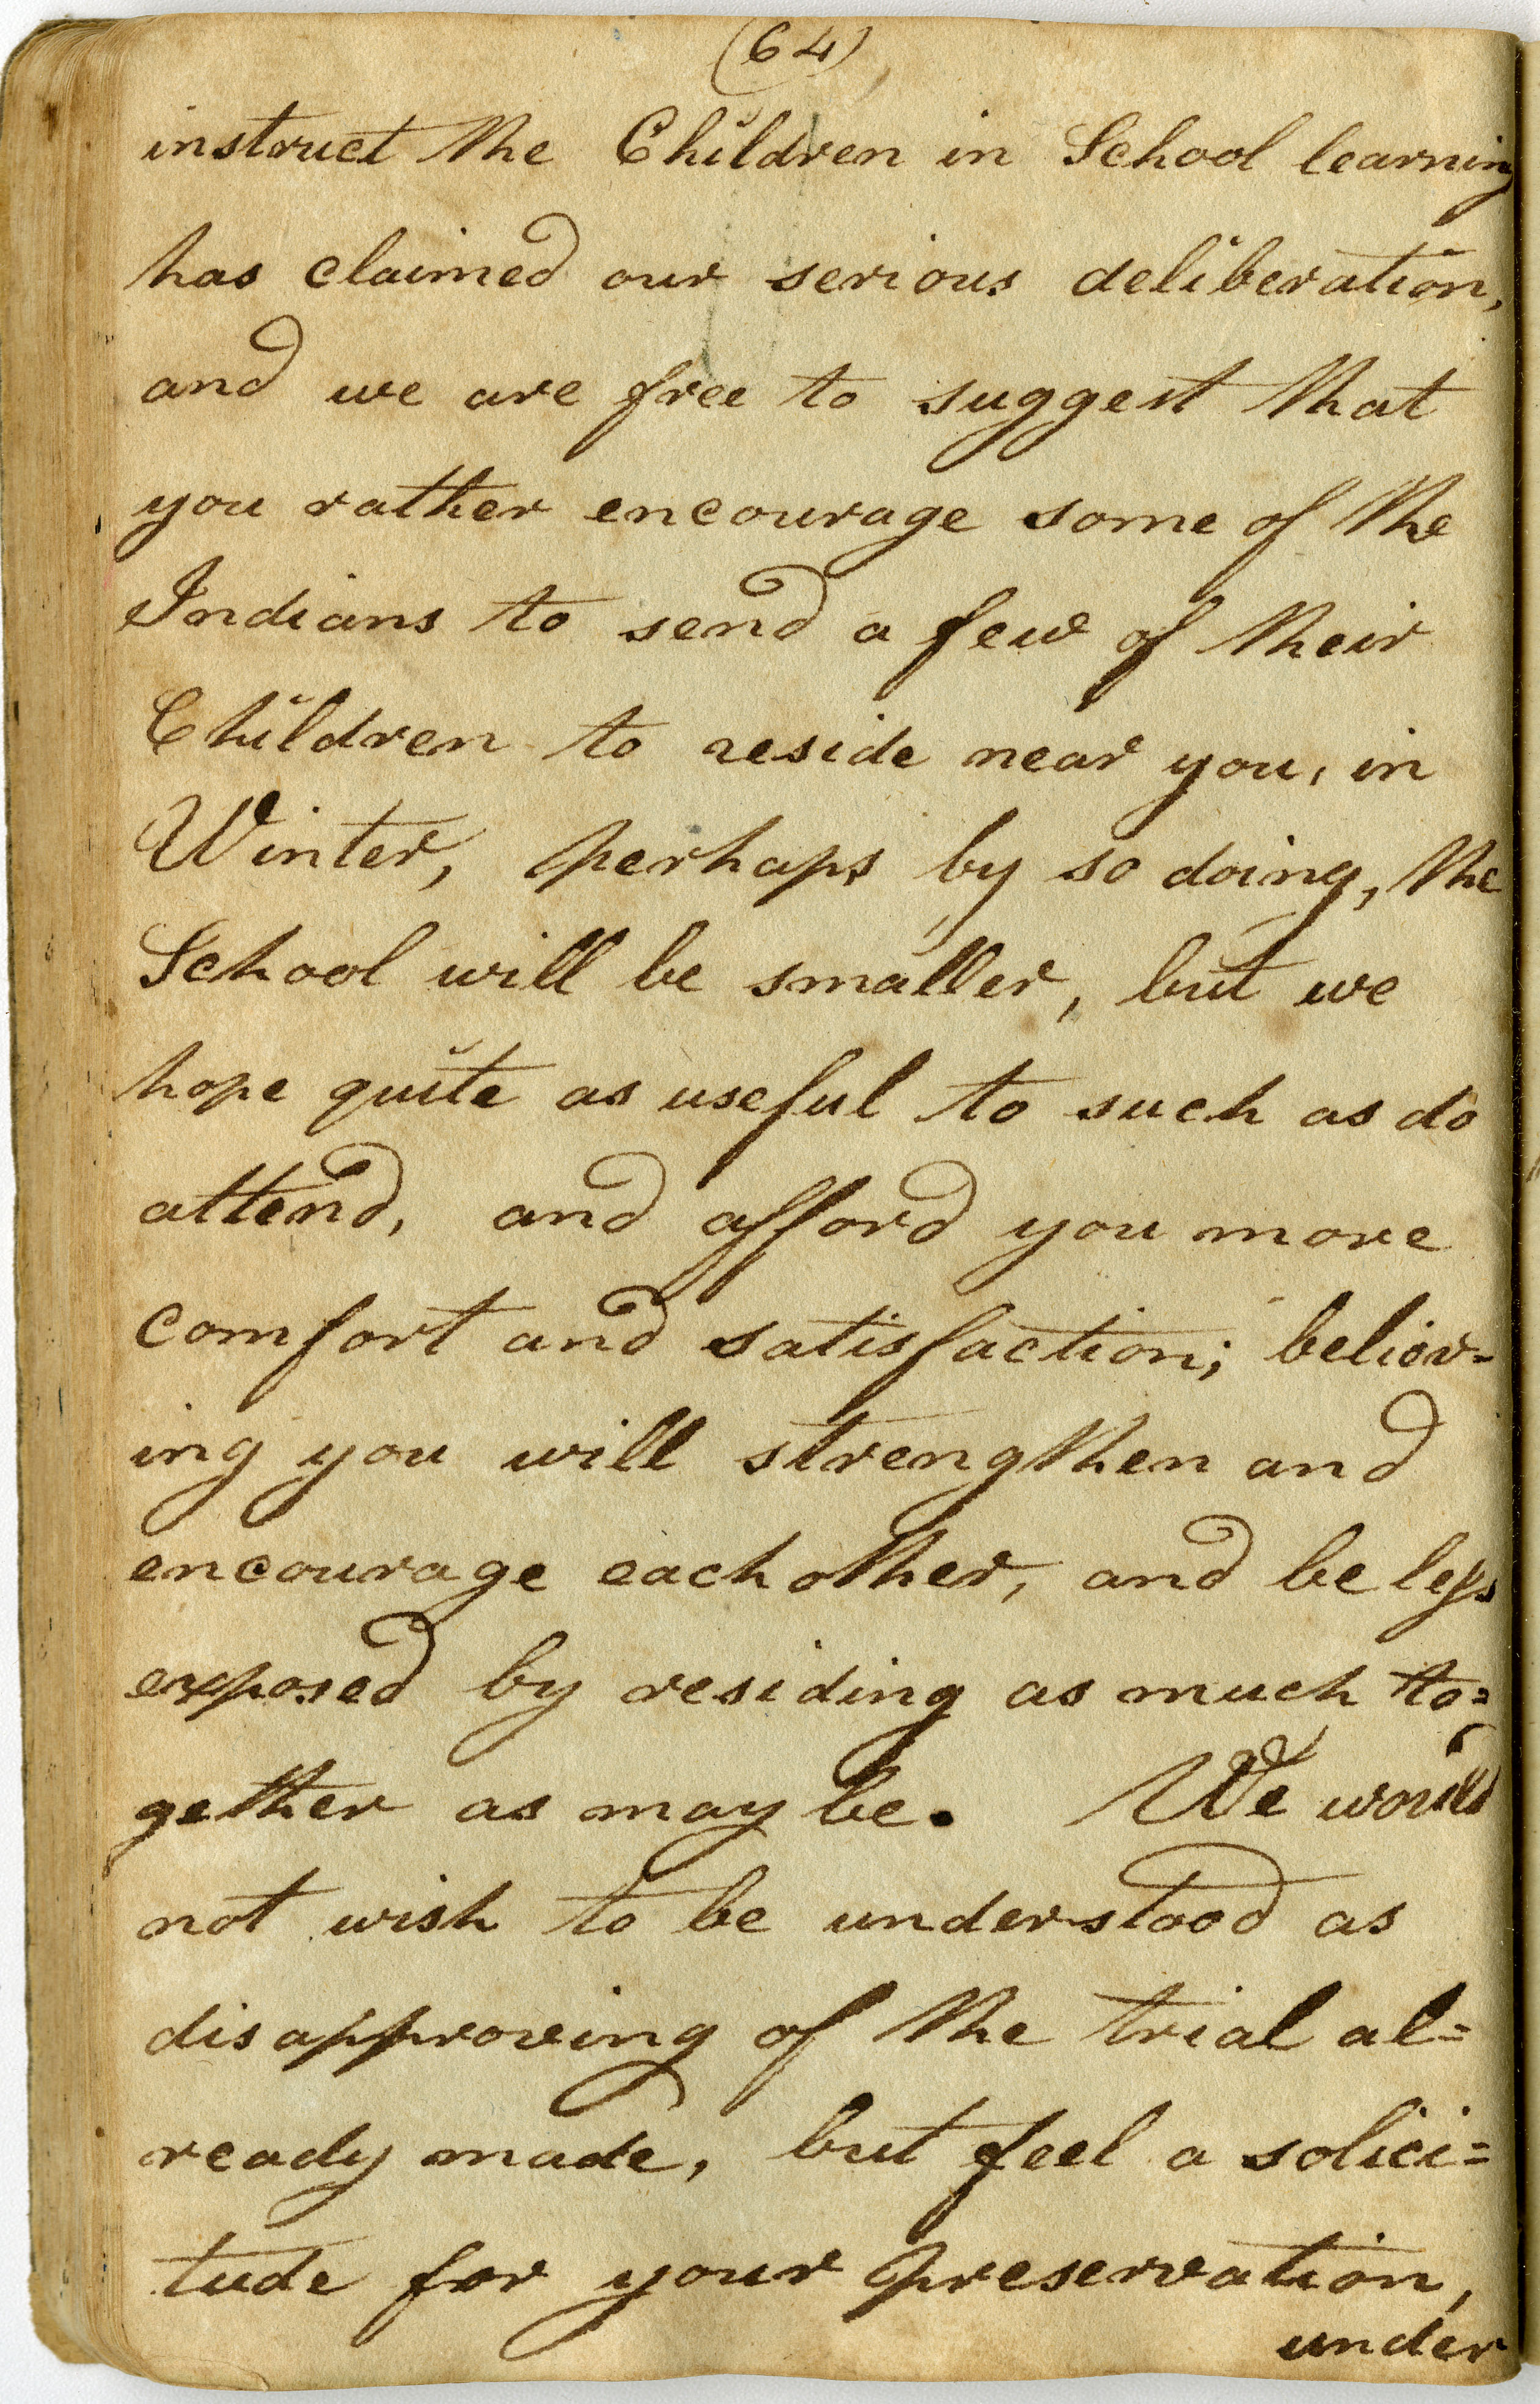 (64)
instruct the Children in School learning
has claimed our serious deliberation,
and we are free to suggest that
you rather encourage some of the
Indians to send a few of their
Children to reside near you, in
Winter, perhaps by so doing, the
School will be smaller, but we
hope quite as useful to such as do
attend, and afford you more
comfort and satisfaction; believ=
ing you will strengthen and
encourage each other, and be less
exposed by residing as much to=
gether as may be. We would
not wish to be understood as
disapproving of the trial al=
ready made, but feel a solici=
tude for your preservation,
under